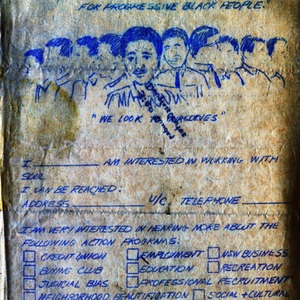 FOR PROGRESSIVE BLACK PEOPLE."
"WE LOOK TO OURSELVES"
I AM INTERESTED IN WORKING WITH
SOUL
I CAN BE REACHED:
ADDRESS U/C TELEPHONE
I AM VERY INTERESTED IN HEARING MORE ABOUT THE
FOLLOWING ACTION PROGRAMS:
CREDIT UNION EMPLOYMENT NEW BUSINESS
BUYING CLUB EDUCATION RECREATION
JUDICIAL BIAS PROFESSIONAL RECRUITMENT
NEIGHBORHOOD BEAUTIFICATION SOCIAL + CULTURAL